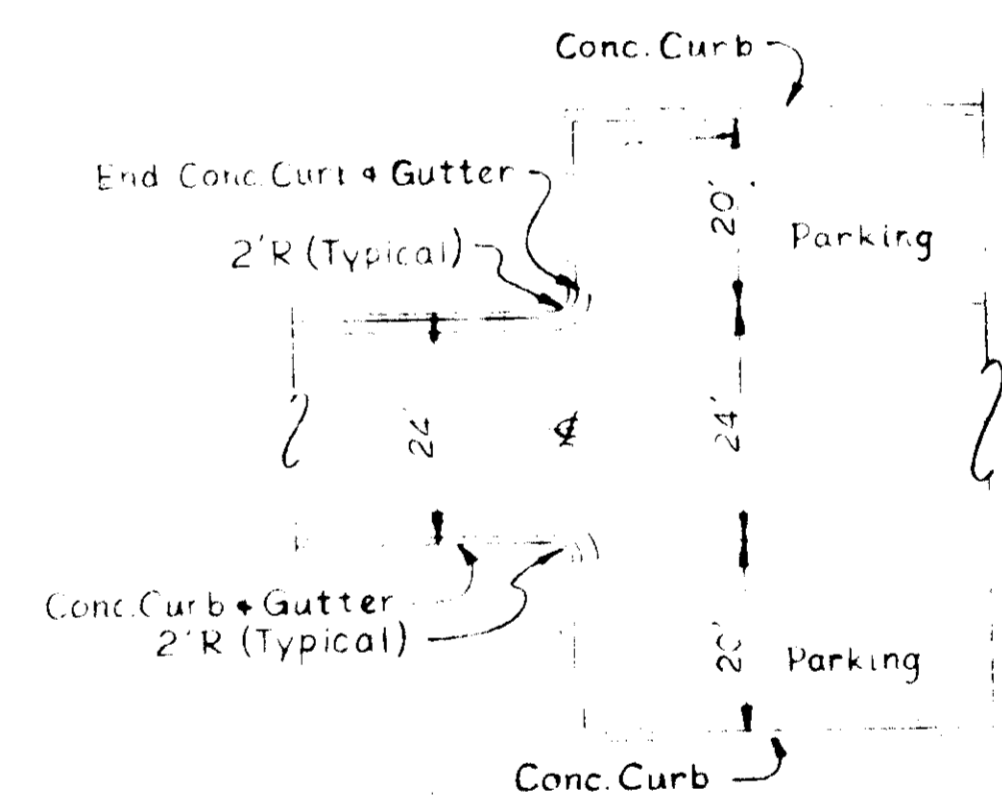 Conc. Curb
End Conc. Curb & Gutter
2'R (Typical)
20'
Parking
24'
Conc. Curb & Gutter
2'R (Typical)
Parking
Conc. Curb